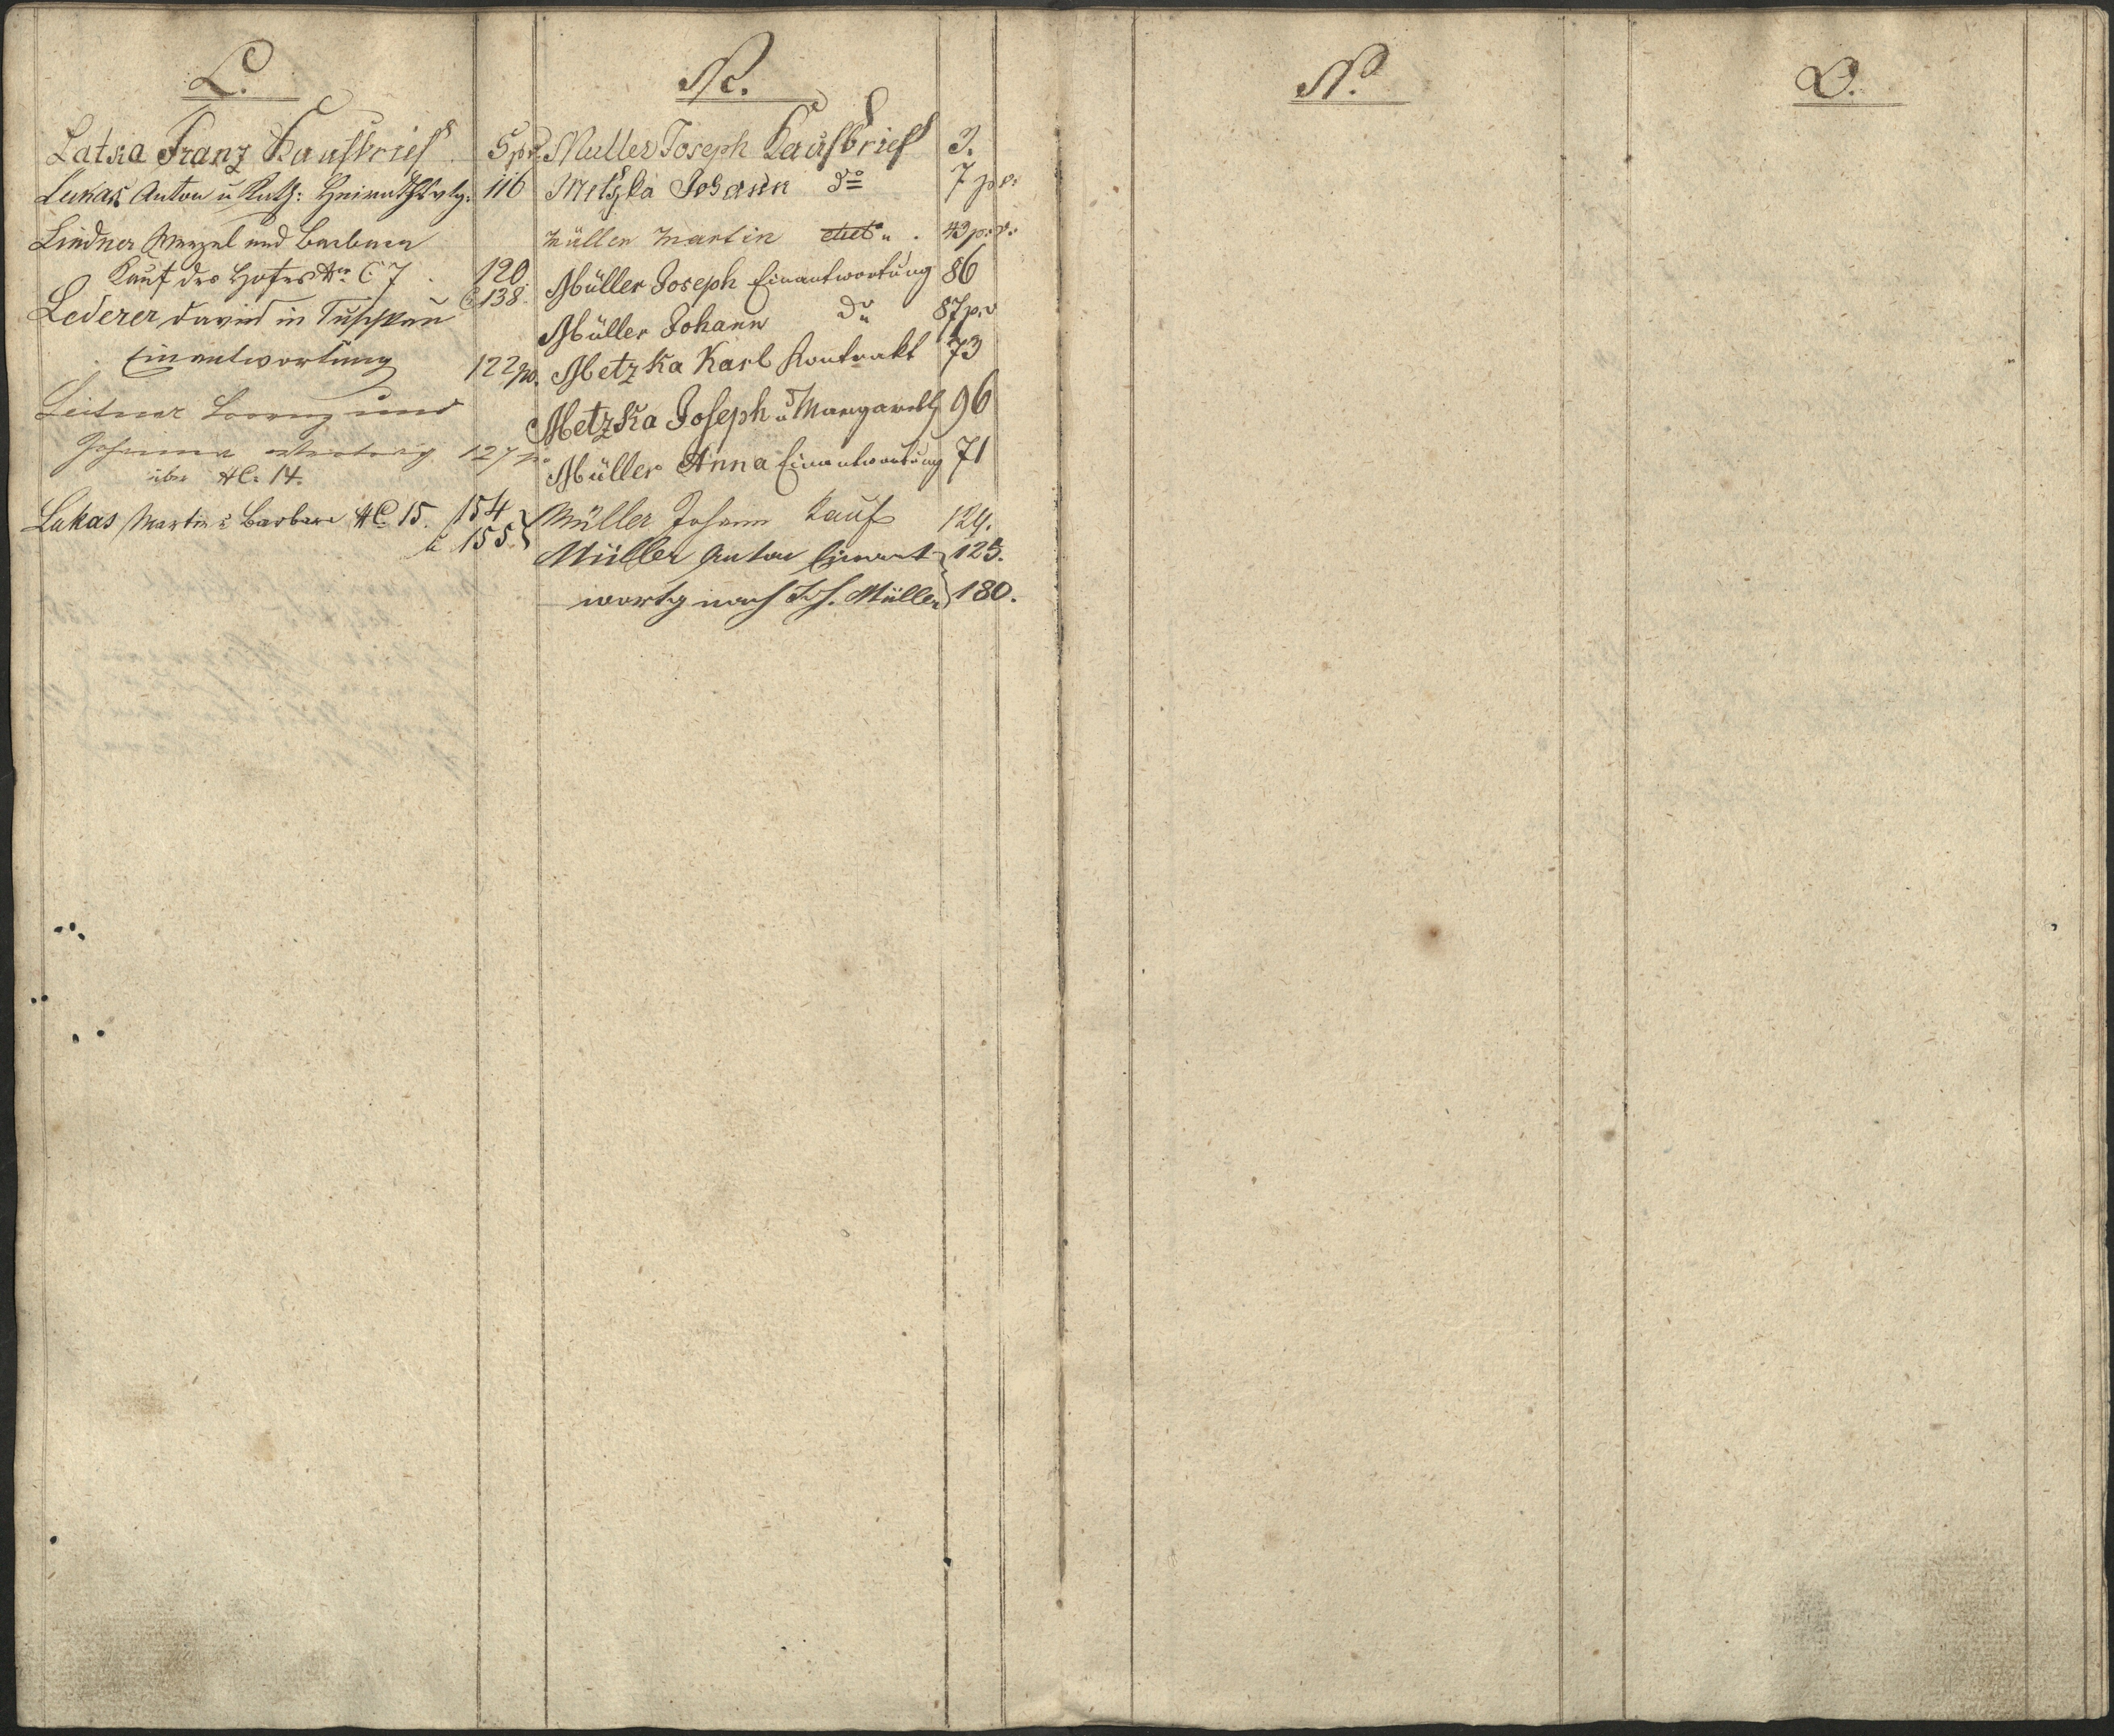 L.
Latka Franz Kaufbrief 5 p. v.
Lukas Anton u Kath: Heirathsvtg. 116
Lindner Wenzel und Barbara
Kauf des Hofes Nr. C. 7 . 120.
& 138.
Lederer David in Tuschkau
Einantwortung 122 pv.
Leitner Lorenz und
Johanna Vertrag 127 p.
über NC. 14.
Lukas Martin u Barbara NC. 15. 154
u 155
M.
Muller Joseph Kaufbrief 3.
Metzka Johann do 7 p. v.
Müller Martin detto . 43 p. v.
Müller Joseph Einantwortung 86
Müller Johann do 87 p. v
Metzka Karl Kontrakt 73
Metzka Joseph u Margareth 96
Müller Anna Einantwortung 71
Müller Johann Kauf 124.
Müller Anton Einant- 125.
wortg nach Jos. Müller 180.
N.
O.